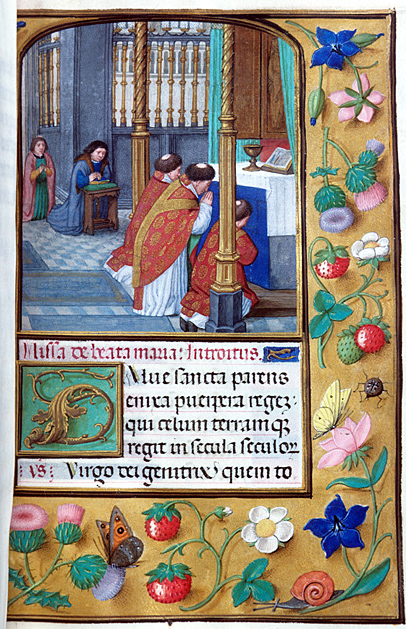 Missa de beata maria: Introitus
Salue sancta parens
enixa puerpera regez:
qui celum terramqz
regit in secula seculor
vs: Virgo dei genitrix quem to